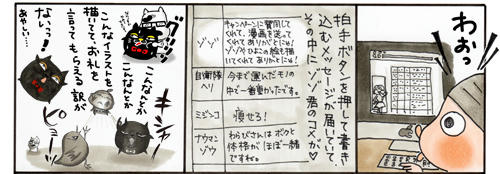 わおっ
拍手ボタンを押して書き
込むメッセージが届いていて、
その中に、ゾゾ君のコメが♡
ゾゾ
キャンペーンに賛同して
くれて、漫画を送って
くれてありがとにゅ!
ゾゾやひよこの絵も描
いてくれてありがとにゅ!
自衛隊
ヘリ
今まで運んだモノの
中で一番重かったです。
ミジンコ
痩せろ!
ナウマン
ゾウ
わらびさんはボクと
体格がほぼ一緒
ですね。
キシャー
こんなんとか
こんなんが
こんなイラストを
描いててお礼を
言ってもらえる訳が
ないっっ!
あやしい…
ピョー